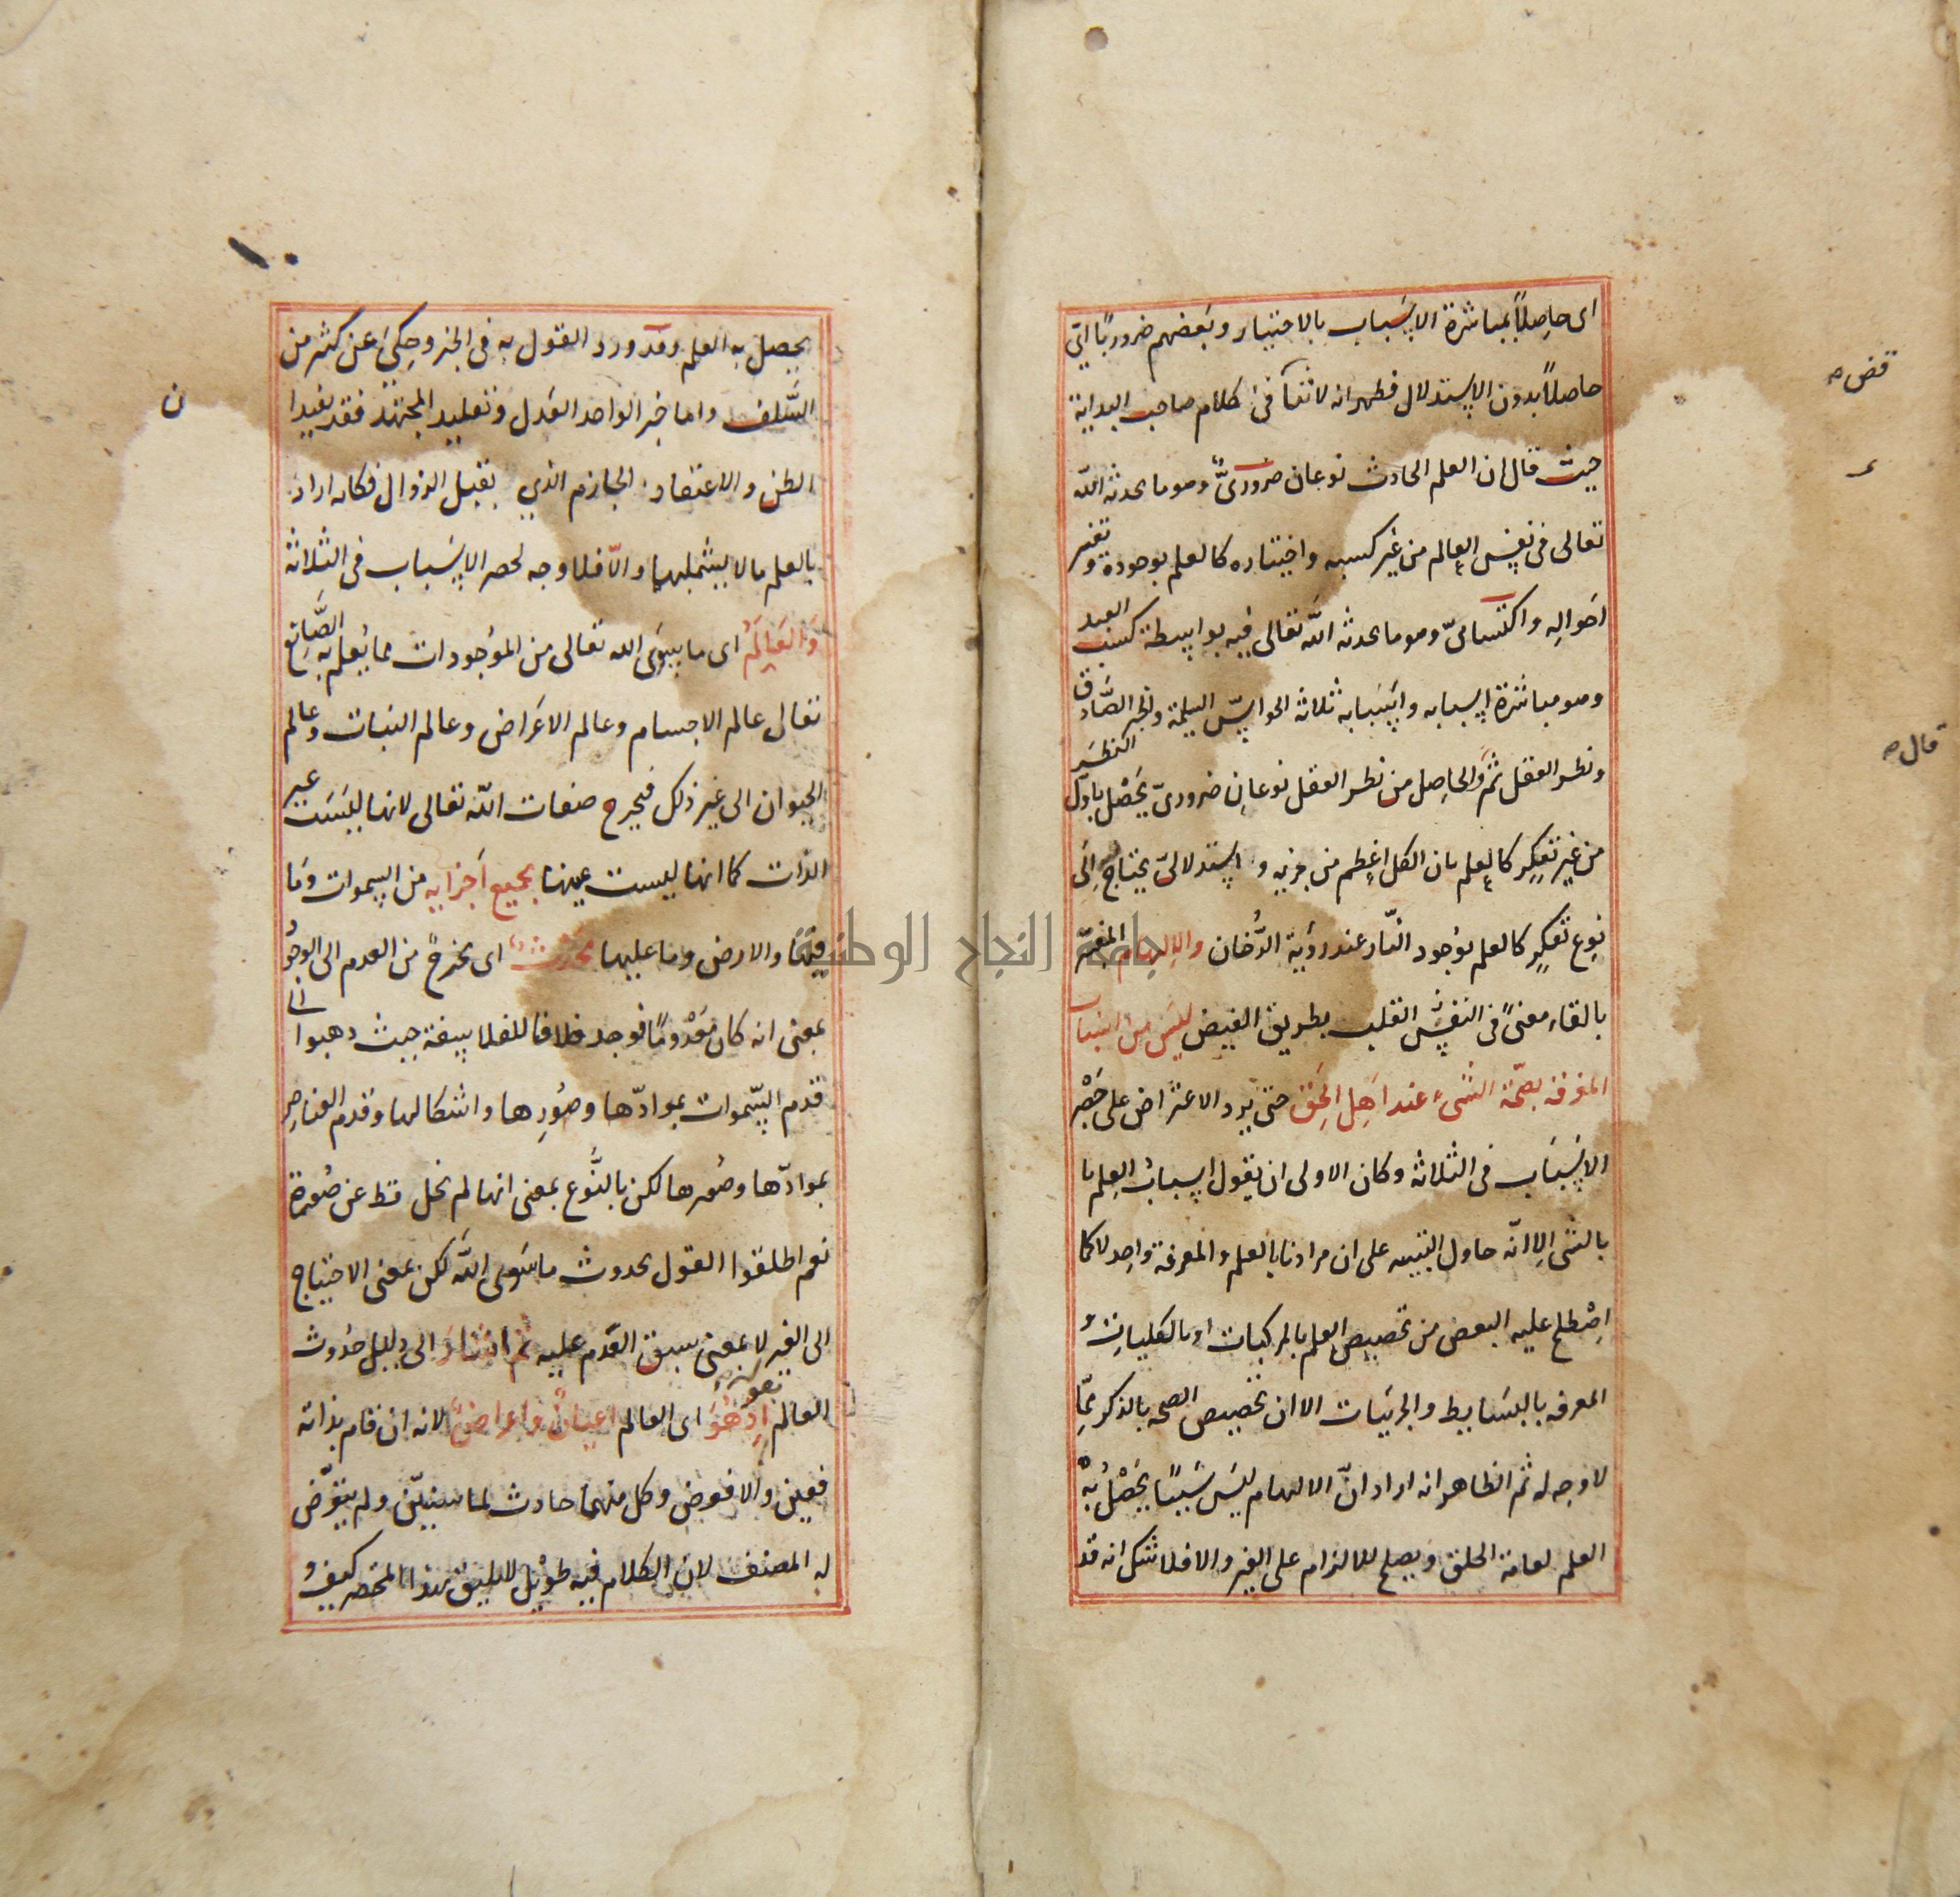 اى حاصلاً بمباشرة الاسباب بالاختيار وبعضهم ضروريًا اى
حاصلاً بدون الاستدلال فظهر انه لا تناقض فى كلام صاحب البداية
حيث قال ان العلم الحادث نوعان ضرورىّ وهو ما يحدثه الله
تعالى فى نفس العالم من غير كسبه واختياره كالعلم بوجوده وتغير
احواله واكتسابىّ وهو ما يحدثه الله تعالى فيه بواسطة كسب العبد
وهو مباشرة اسبابه واسبابه ثلاثة الحواسّ السليمة والخبر الصّادق
ونظر العقل ثمّ والحاصل من نظر العقل نوعان ضرورىّ يحصل باول النظر
من غير تفكر كالعلم بان الكل اعظم من جزئه واستدلالىّ يحتاج الى
نوع تفكر كالعلم بوجود النّار عند رؤية الدُّخان والالهام المفسّر
بالقاء معنىً فى القلب بطريق الفيض ليس من اسباب
المعرفة بصحّة الشىء عند اهل الحق حتى يرد الاعتراض على حصر
الاسباب فى الثلاثة وكان الاولى ان يقول اسباب العلم
بالشى الا انّه حاول التنبيه على ان مرادنا بالعلم والمعرفة واحد لا كما
اصطلح عليه البعض من تخصيص العلم بالمركبات او بالكليات و
المعرفة بالبسايط والجزئيات الا ان تخصيص الصحة بالذكر ممّا
لا وجه له ثم الظاهر انه اراد انّ الالهام ليس سببًا يحصل به
العلم لعامة الخلق ويصلح للالزام على الغير والا فلا شك انه قد
قال
يحصل به العلم وقد ورد القول به فى الخبر وحكى عن كثير من
السّلف واما خبر الواحد العدل وتقليد المجتهد فقد يفيدا
ن
الظن والاعتقاد الجازم الذي يقبل الزوال فكانه اراد
بالعلم ما لا يشملهما والّا فلا وجه لحصر الاسباب فى الثلاثة
والعالم اى ما سوى الله تعالى من الموجودات مما يُعلم به الصّانع
تعالى عالم الاجسام وعالم الاعراض وعالم النبات وعالم
الحيوان الى غير ذلك فيخرج صفات الله تعالى لانها ليست غير
الذات كما انها ليست عينها بجميع اجزايه من السموات وما
فيها والارض وما عليها محدث اى مخرج من العدم الى الوجود
بمعنى انه كان معدومًا فوجد خلافا للفلاسفة حيث ذهبوا الى
قدم السّموات بموادّها وصُورها واشكالها وقدم العناصر
بموادّها وصُورها لكن بالنّوع بمعنى انها لم تخل قط عن صُورة
نعم اطلقوا القول بحدوث ما سوى الله لكن بمعنى الاحتياج
الى الغير لا بمعنى سبق العدم عليه ثم اشار الى دليل حُدوث
العالم بقوله اذ هُوَ اى العالم اعيانٌ واعراضٌ لانه ان قام بذاته
فعين والا فعرض وكل منهما حادث لما سنبيّن ولم يتعرّض
له المصنف لان الكلام فيه طويل لا يليق بهذا المختصر كيف و
جامعة النجاح الوطنية